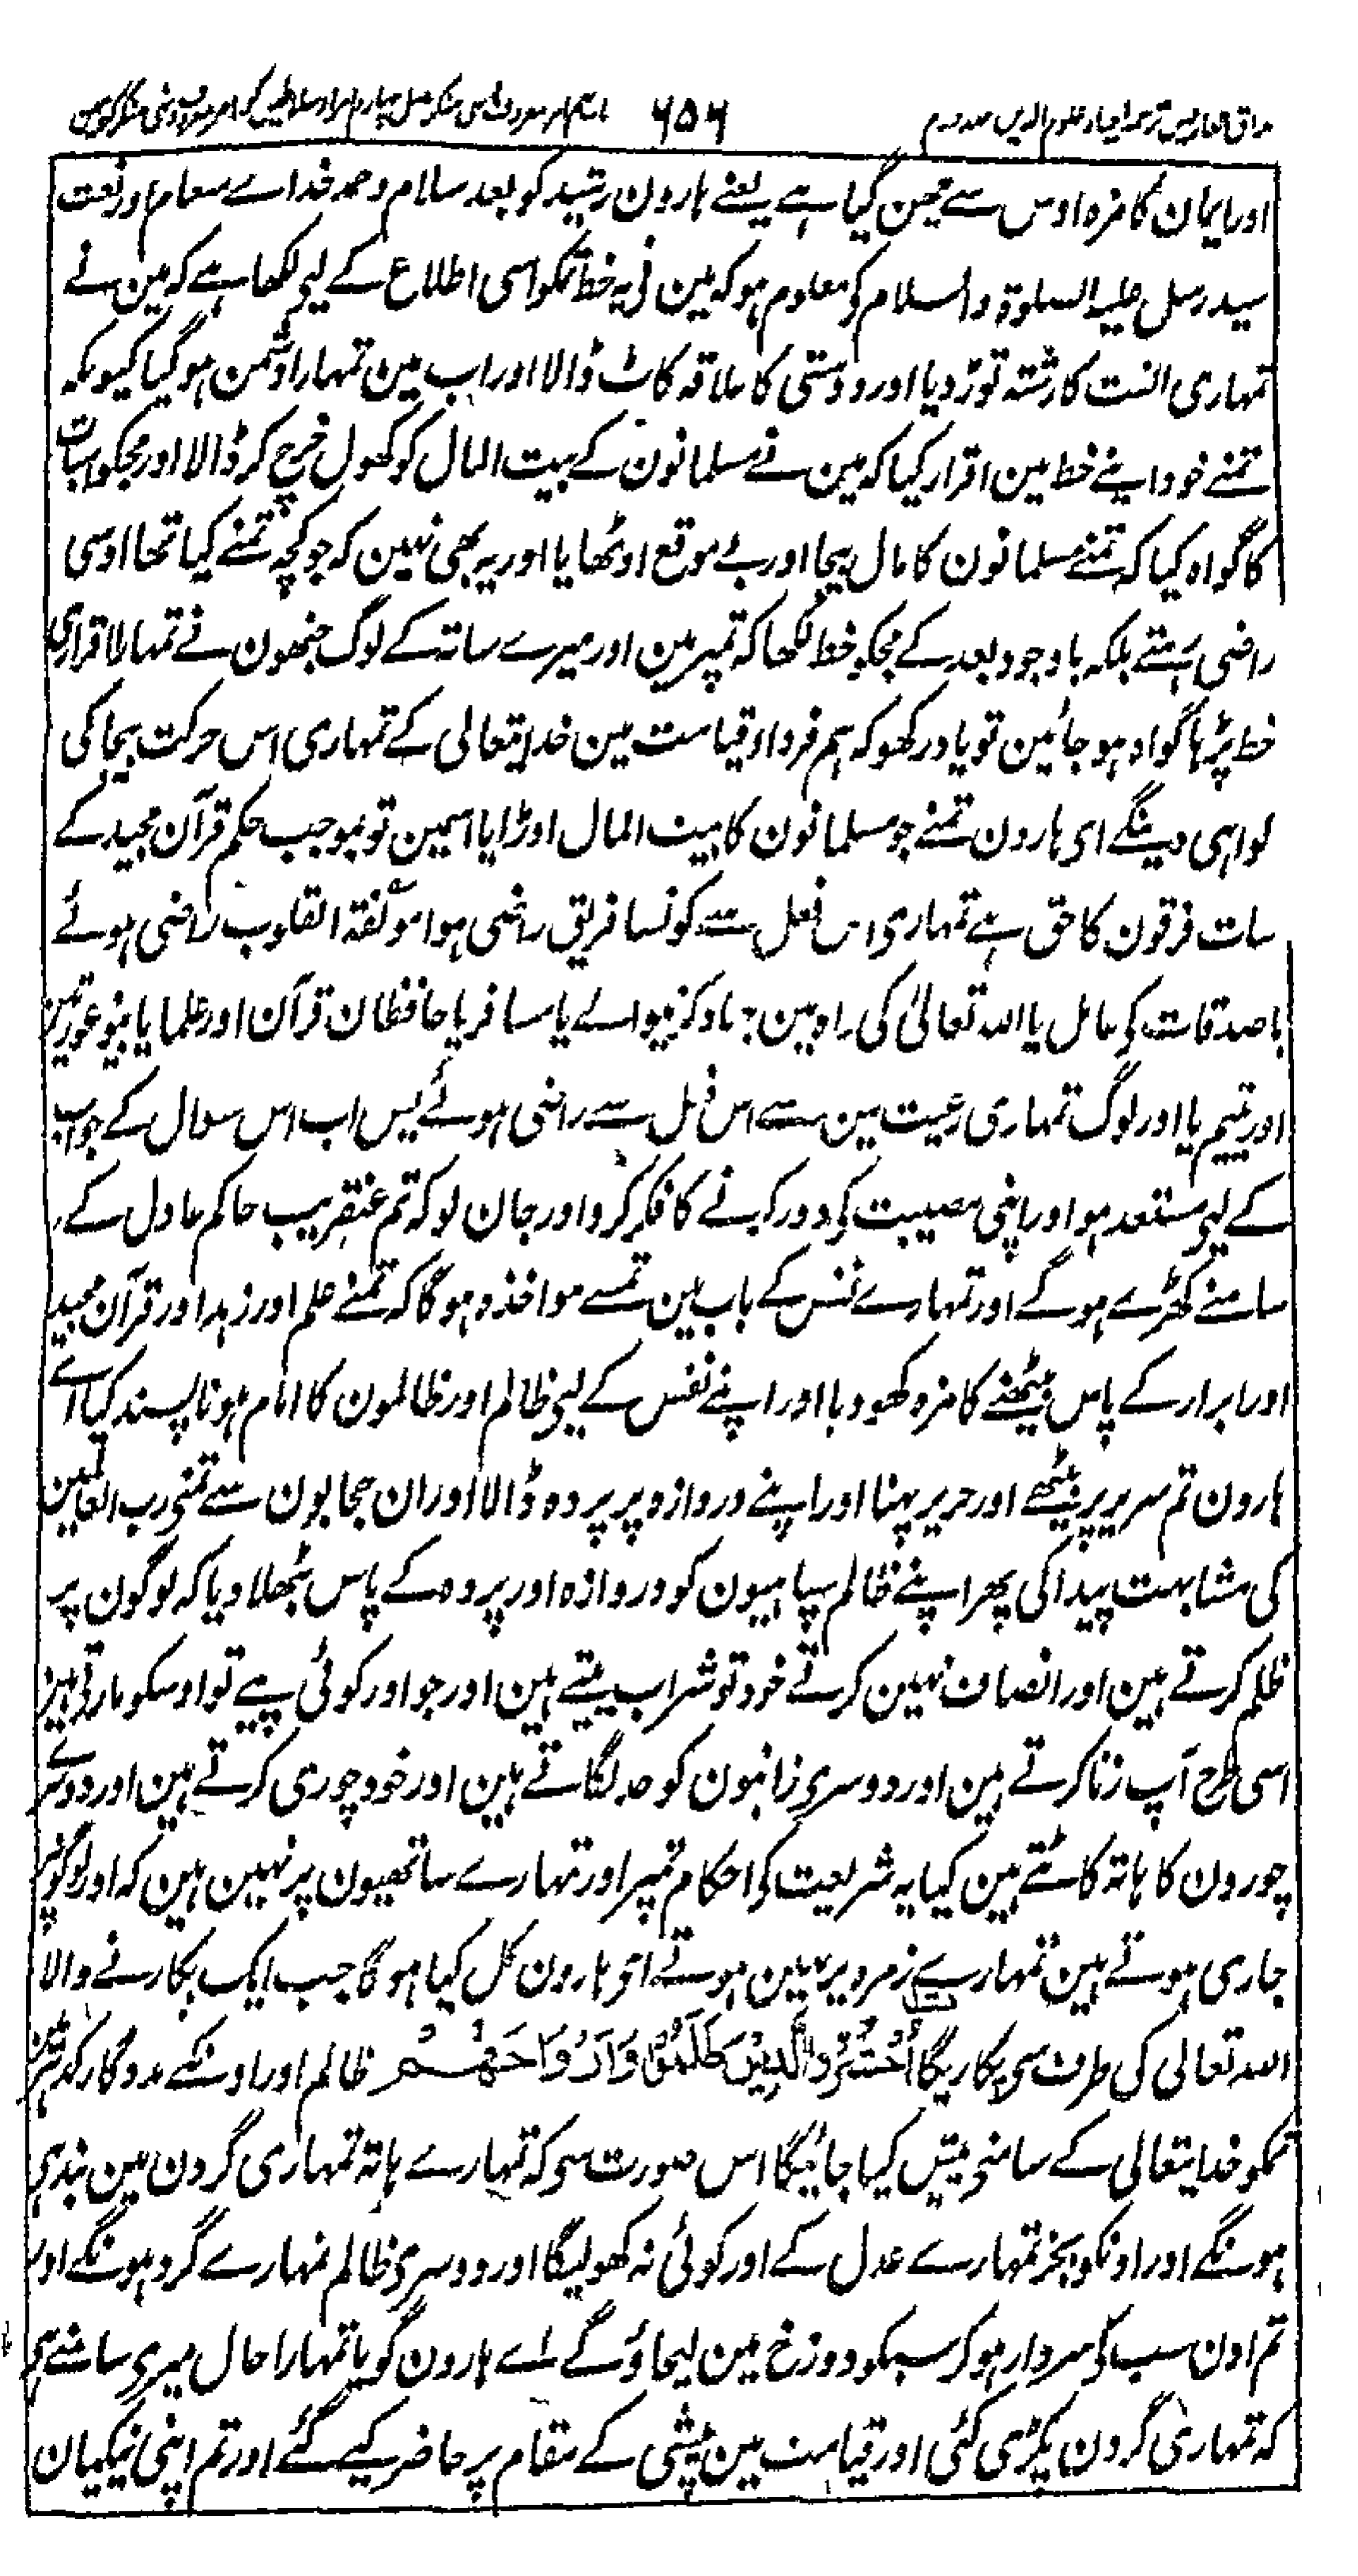 مذاق العارفین ترجمہ احیاء علوم الدین جلد دوم ۶۵۶
اور ایمان کا مزہ اوس سے چھین گیا ہے یعنے ہارون رشید کو بعد سلام وحمد خداے سعام اور نعت
سید رسل علیہ الصلوۃ والسلام کو معلوم ہو کہ مین نی یہ خط تمکو اسی اطلاع کے لیے لکھا ہے کہ مین نے
تمہاری الفت کا رشتہ توڑ دیا اور دوستی کا علاقہ کاٹ ڈالا اور اب مین تمہارا دشمن ہو گیا کیونکہ
تمنے خود اپنے خط مین اقرار کیا کہ مین نے مسلمانون کے بیت المال کو کھول خرچ کر ڈالا اور مجکو اسبات
کا گواہ کیا کہ تمنے مسلمانون کا مال بیجا اور بے موقع اوٹھایا اور یہ بھی نہین کہ جو کچھ تمنے کیا تھا اوسی
راضی رہتے بلکہ باوجود بعد کے مجکو خط لکھا کہ تمپر مین اور میرے ساتہ کے لوگ جنھون نے تمہارا اقراری
خط پڑہا گواہ ہو جائین تو یاد رکھو کہ ہم فرداء قیامت مین خدایتعالی کے تمہاری اس حرکت بیجا کی
گواہی دینگے ای ہارون تمنے جو مسلمانون کا بیت المال اوڑایا اسمین تو بموجب حکم قرآن مجید کے
سات فرقون کا حق ہے تمہاری اس فعل سے کونسا فریق راضی ہوا مولفۃ القلوب راضی ہوئے
یا صدقات کے عامل یا اللہ تعالیٰ کی راہ مین جہاد کرنیوالے یا مسافر یا حافظان قرآن اور علما یا بیوہ عورتین
اور یتیم یا اور لوگ تمہاری رعیت مین سے اس فعل سے راضی ہوئے پس اب اس سوال کے جواب
کے لیے مستعد ہو اور اپنی مصیبت کو دور کرنے کا فکر کرو اور جان لو کہ تم عنقریب حاکم عادل کے
سامنے کھڑے ہو گے اور تمہارے نفس کے باب مین تمسے مواخذہ ہوگا کہ تمنے علم اور زہد اور قرآن مجید
اور ابرار کے پاس بیٹھنے کا مزہ کھو دیا اور اپنے نفس کے لیے ظالم اور ظالمون کا امام ہونا پسند کیا اے
ہارون تم سریر پر بیٹھے اور حریر پہنا اور اپنے دروازہ پر پردہ ڈالا اور ان حجابون سے تمنے رب العالمین
کی مشابہت پیدا کی پھر اپنے ظالم سپاہیون کو دروازہ اور پردہ کے پاس بٹھلا دیا کہ لوگون پر
ظلم کرتے ہین اور انصاف نہین کرتے خود تو شراب پیتے ہین اور جو اور کوئی پیے تو اوسکو مارتے ہین
اسی طرح آپ زنا کرتے ہین اور دوسرے زانیون کو حد لگاتے ہین اور خود چوری کرتے ہین اور دوسرے
چورون کا ہاتہ کاٹتے ہین کیا یہ شریعت کے احکام تمپر اور تمہارے ساتھیون پر نہین ہین کہ اور لوگونپر
جاری ہوتے ہین تمہارے زمرہ پر نہین ہوتے ای ہارون کل کیا ہوگا جب ایک پکارنے والا
اللہ تعالی کی طرف سی پکاریگا اُحْشُرُوا الَّذِیْنَ ظَلَمُوْا وَاَزْوَاجَهُمْ ظالم اور اونکے مددگار کدھر ہین
تمکو خدایتعالی کے سامنی پیش کیا جائیگا اس صورت سی کہ تمہارے ہاتہ تمہاری گردن مین بندہی
ہونگے اور اونکو بجز تمہارے عدل کے اور کوئی نہ کھولیگا اور دوسری ظالم تمہارے گرد ہونگے اور
تم اون سب کے سردار ہو کر سبکو دوزخ مین لیجاؤگے اے ہارون گویا تمہارا حال میری سامنے ہی
کہ تمہاری گردن پکڑی گئی اور قیامت مین پیشی کے مقام پر حاضر کیے گئے اور تم اپنی نیکیان